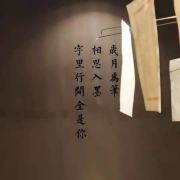 歲月為筆
相思入墨
字里行間全是你